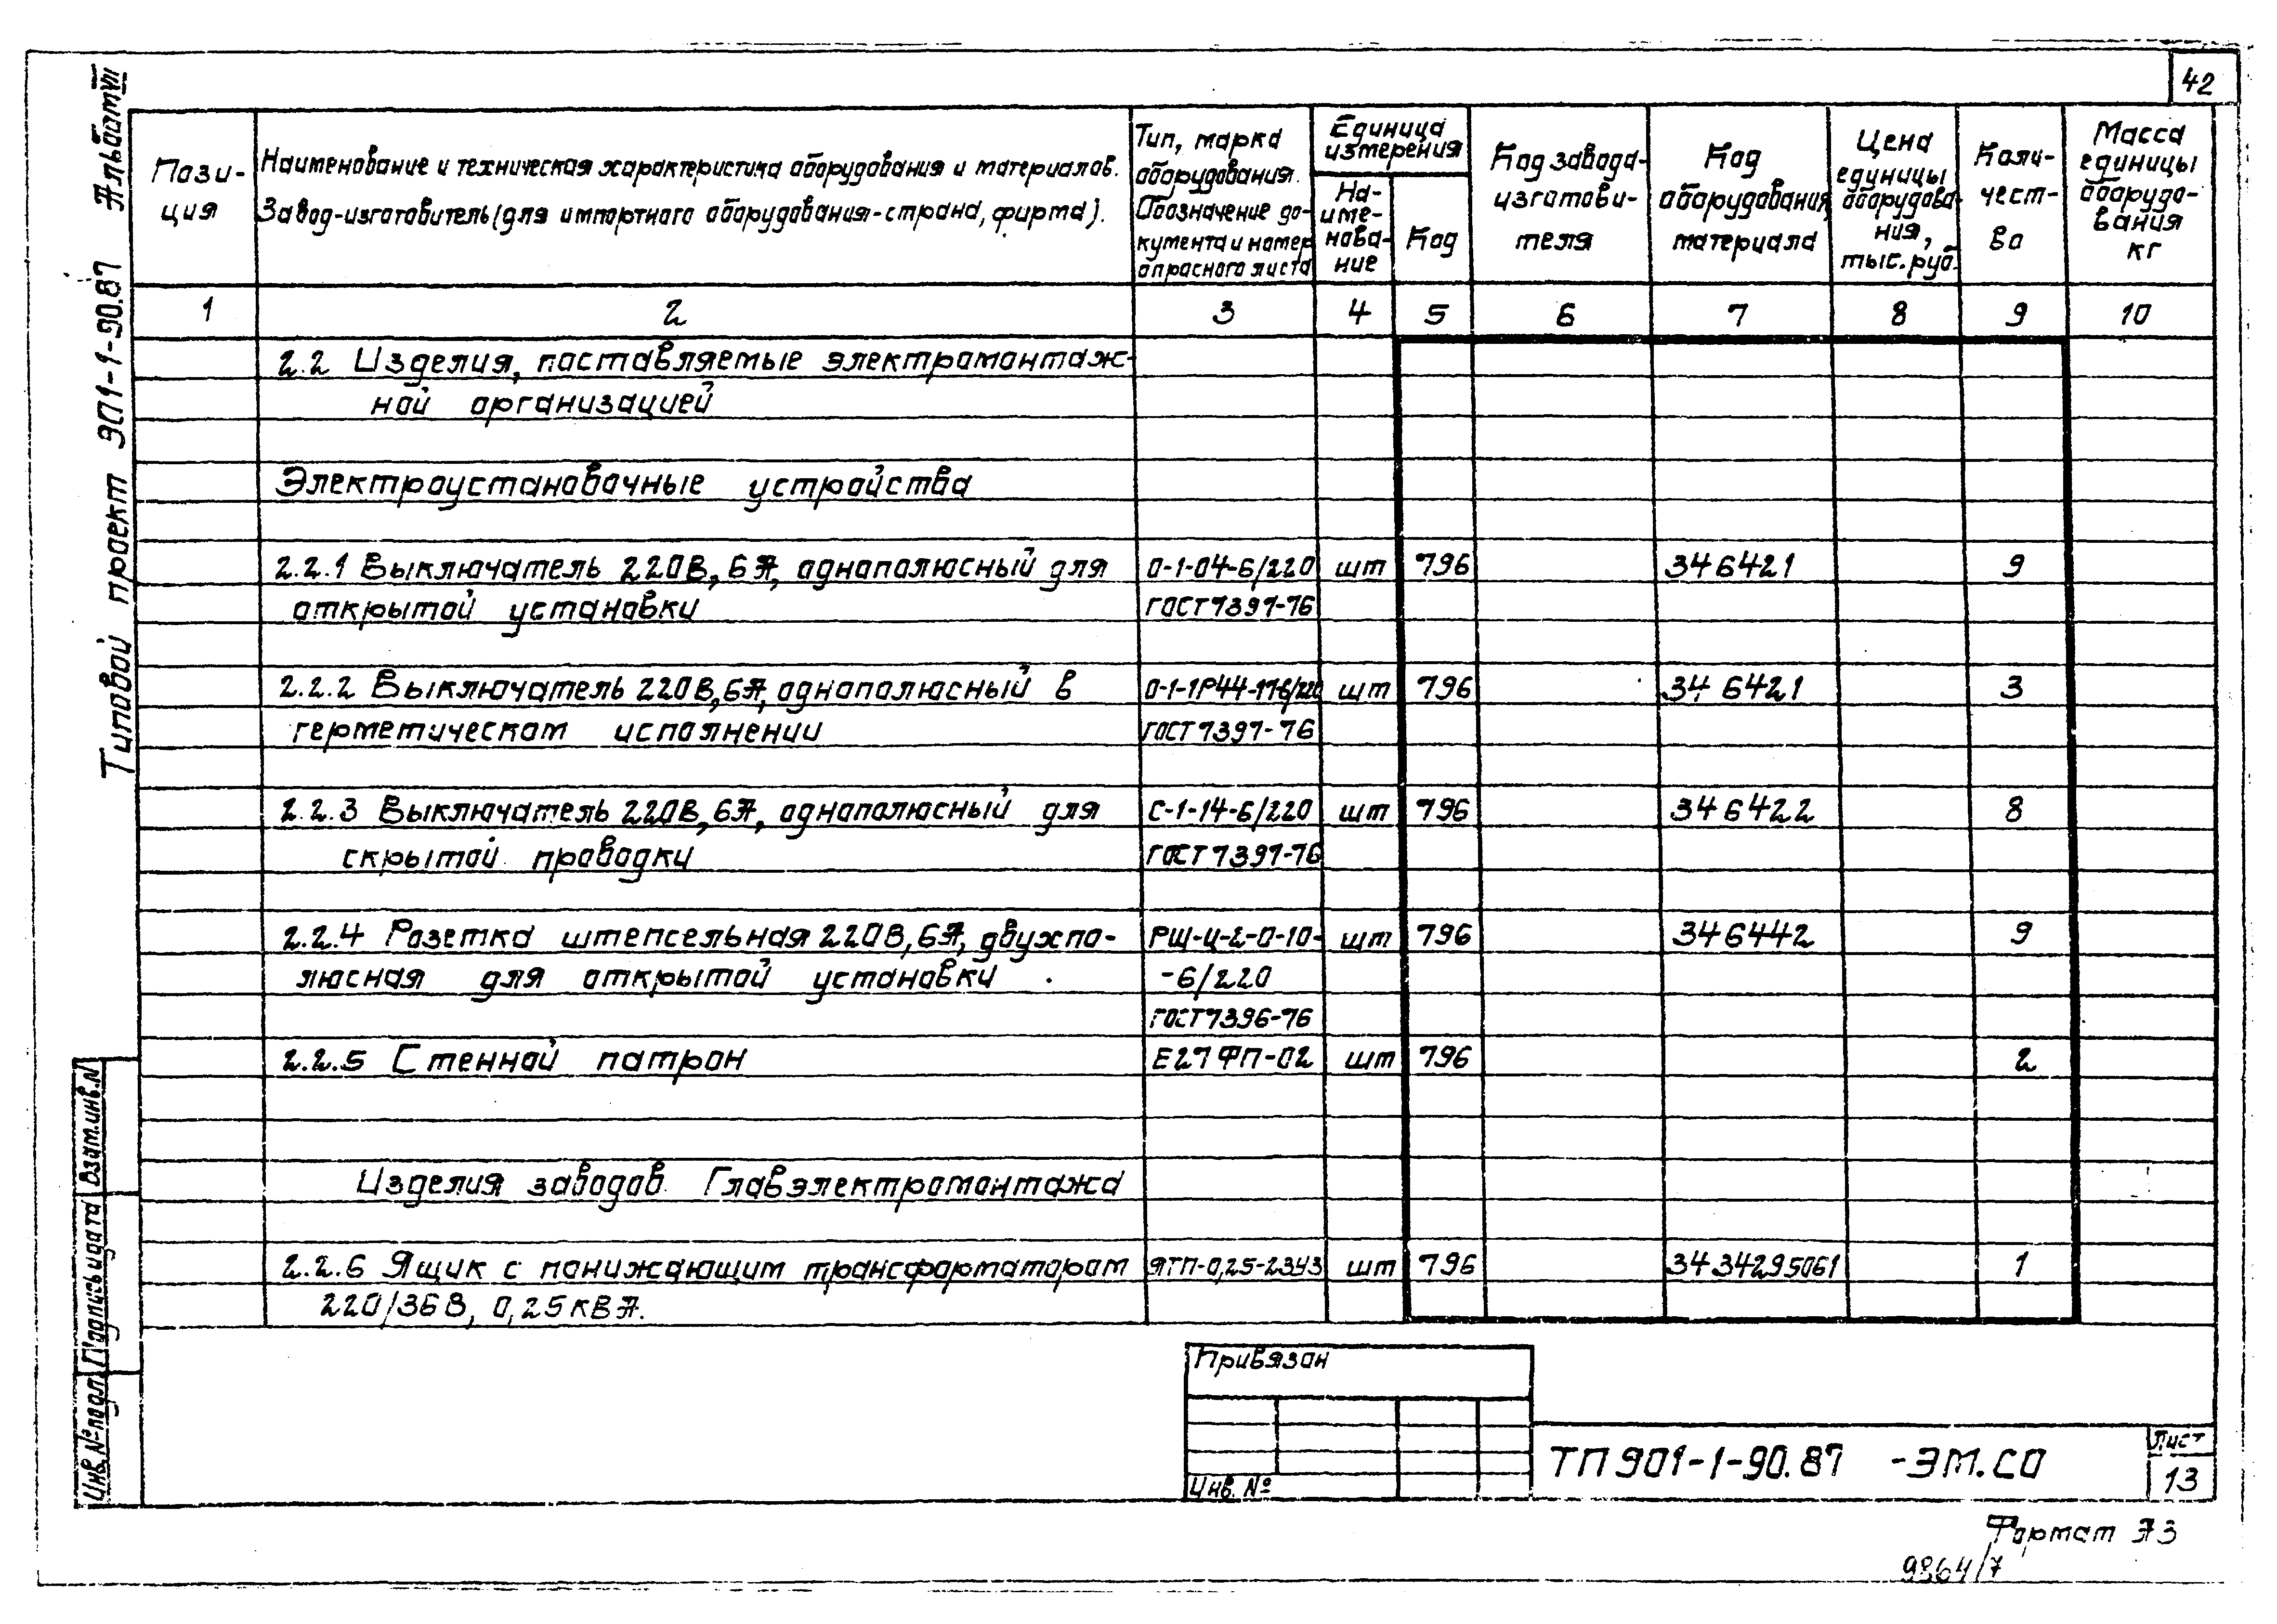 42
Типовой проект 901-1-90.87 Альбом VII
Пози-
ция
Наименование и техническая характеристика оборудования и материалов.
Завод-изготовитель (для импортного оборудования-страна, фирма).
Тип, марка
оборудования.
Обозначение до-
кумента и номер
опросного листа
Единица
измерения
На-
име-
нова-
ние
Код
Код завода-
изготови-
теля
Код
оборудования,
материала
Цена
единицы
оборудова-
ния,
тыс.руб.
Коли-
чест-
во
Масса
единицы
оборудо-
вания
кг
1 2 3 4 5 6 7 8 9 10
2.2 Изделия, поставляемые электромонтаж-
ной организацией
Электроустановочные устройства
2.2.1 Выключатель 220В, 6А, однополюсный для О-1-04-6/220 шт 796 346421 9
открытой установки ГОСТ 7397-76
2.2.2 Выключатель 220В, 6А, однополюсный в О-1-1Р44-17-6/220 шт 796 34 6421 3
герметическом исполнении ГОСТ 7397-76
2.2.3 Выключатель 220В, 6А, однополюсный для С-1-14-6/220 шт 796 346422 8
скрытой проводки ГОСТ 7397-76
2.2.4 Розетка штепсельная 220В, 6А, двухпо- РШ-Ц-2-0-10- шт 796 346442 9
люсная для открытой установки -6/220
ГОСТ 7396-76
2.2.5 Стенной патрон Е27 ФП-02 шт 796 2
Изделия заводов Главэлектромонтажа
2.2.6 Ящик с понижающим трансформатором ЯТП-0,25-23У3 шт 796 3434295061 1
220/36В, 0,25кВА.
Взам.инв.N
Подпись и дата
Инв.№ подл.
Привязан
Инв. №
ТП 901-1-90.87 -ЭМ.СО
Лист
13
Формат А3
9864/7